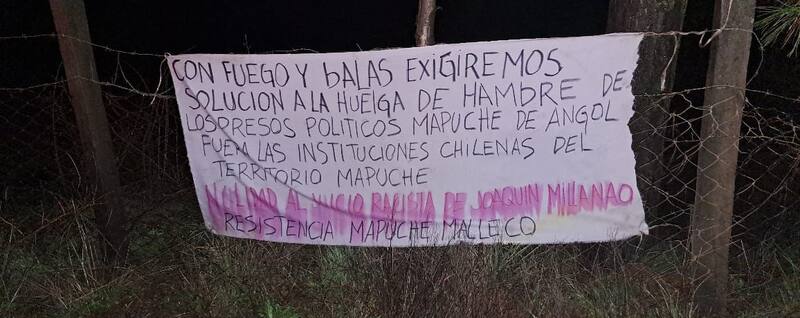 CON FUEGO Y bALAS EXIGIREMOS
SOLUCION A LA HUElGA DE HAMBRE DE
LOS PRESOS POLITICOS MAPUCHE DE ANGOL
FUERA LAS INSTITUCIONES CHILENAS DEL
TERRITORIO MAPUCHE
NULIDAD AL JUICIO RACISTA DE JOAQUIN MILLANAO
RESISTENCIA MAPUCHE MALLECO